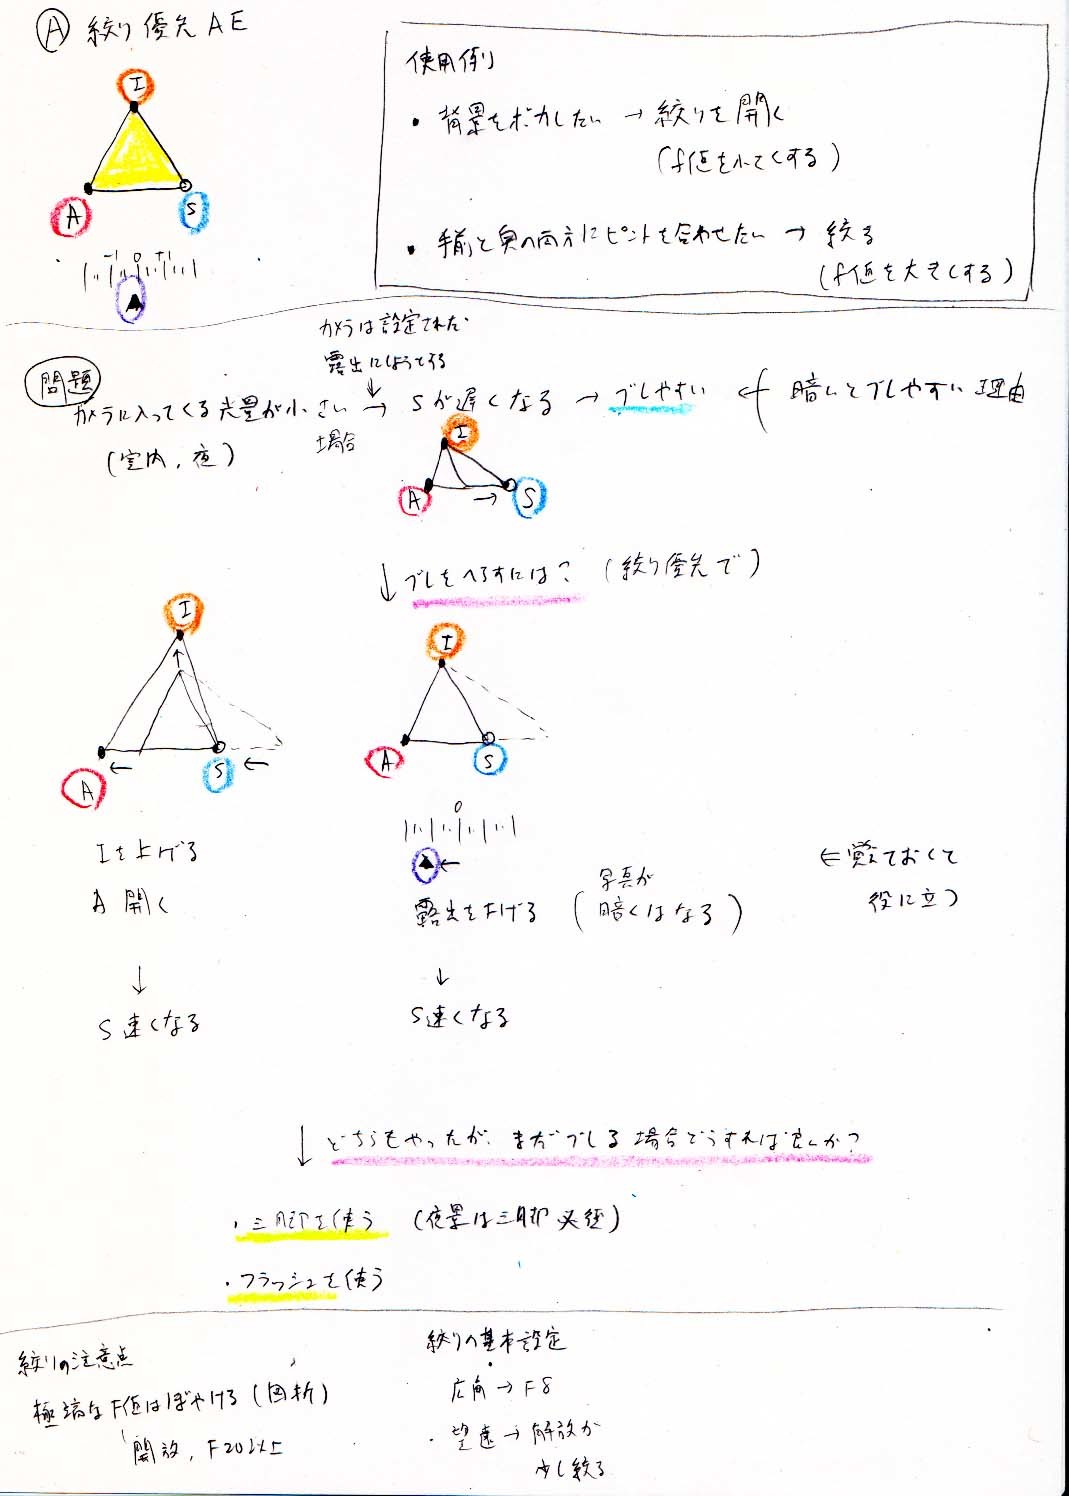 Ⓐ 絞り優先AE
I
A
S
-1 0 +1
使用例
・背景をボカしたい → 絞りを開く
(f値を小さくする)
・手前と奥の両方にピントを合わせたい → 絞る
(f値を大きくする)
カメラは設定された
露出にしようとする
↓
問題
カメラに入ってくる光量が小さい → Sが遅くなる → ブレやすい ← 暗いとブレやすい理由
場合
(室内,夜)
I
A
→
S
↓ ブレをへらすには? (絞り優先で)
I
↑
A
←
S
←
I
A
S
0
←
Iを上げる
A 開く
↓
S 速くなる
露出を下げる
(写真が
暗くはなる)
↓
S速くなる
⇐覚えておくて
役に立つ
↓ どちらもやったが、まだブレる場合どうすれば良いか?
・三脚を使う (夜景は三脚必須)
・フラッシュを使う
絞りの注意点
極端なF値はぼやける(回折)
開放, F20以上
絞りの基本設定
広角→F8
・望遠→解放か
少し絞る